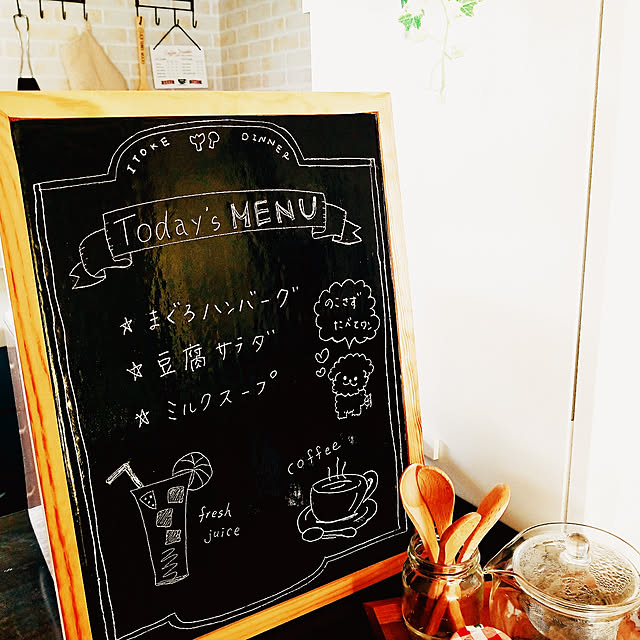 ITOKE DINNER
Today's MENU
☆ まぐろハンバーグ
☆ 豆腐サラダ
☆ ミルクスープ
のこさず
たべてワン
coffee
fresh
juice